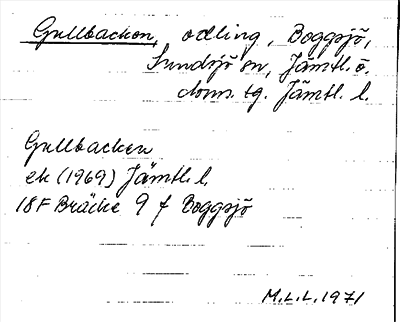 Gullbacken, odling, Boggsjö,
Sundsjö sn, Jämtl. ö.
doms. tg. Jämtl. l.
Gullbacken
ek (1969) Jämtl. l.
18F Bräcke 9 f Boggsjö
M.L.L. 1971